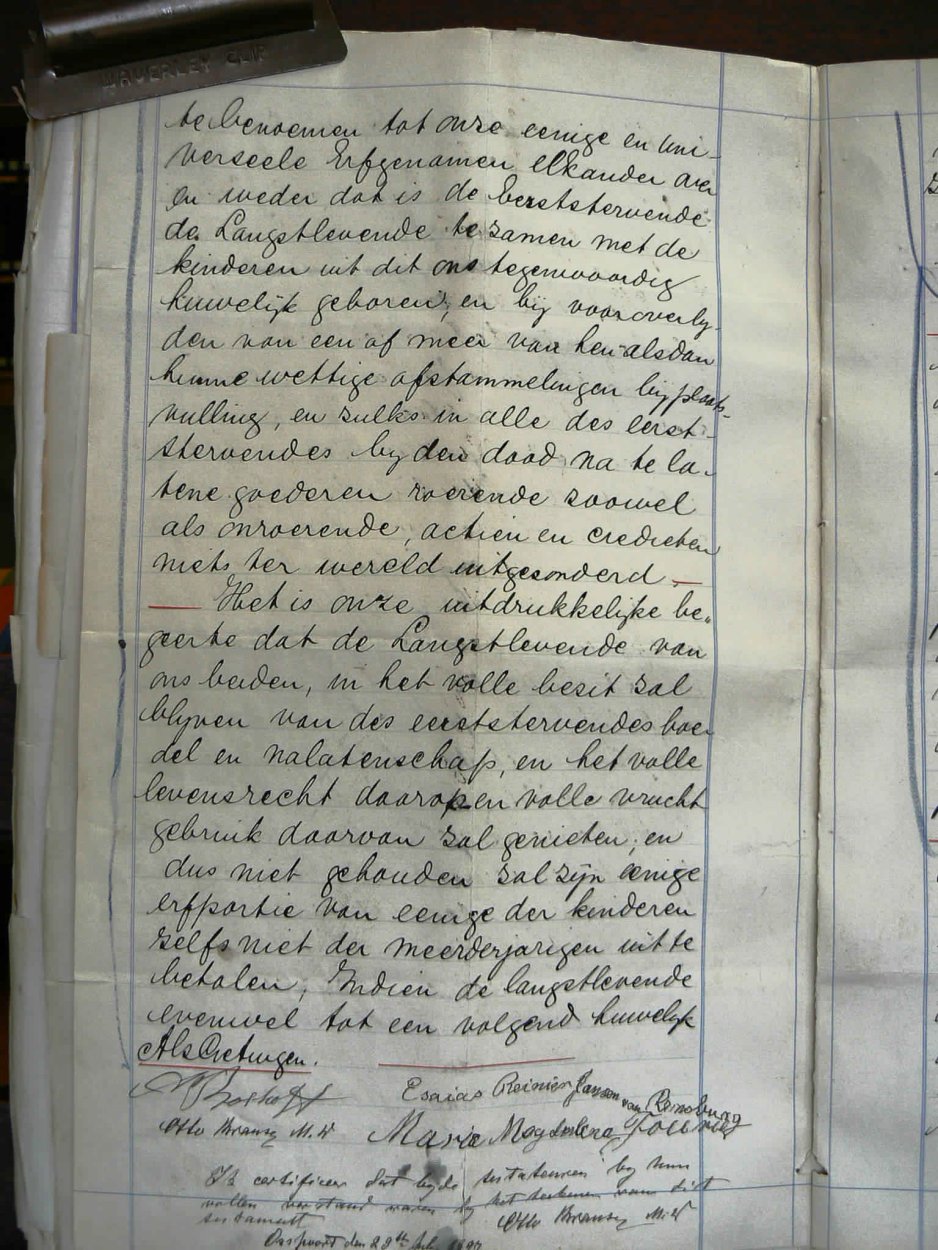 WAVERLEY CLIP
te benoemen tot onze eenige en Uni-
verseele Erfgenamen elkander over
en weder dat is de Eerststervende
de Langstlevende te zamen met de
kinderen uit dit ons tegenwoordig
huwelijk geboren, en bij vooroverly-
den van een of meer van hen alsdan
hunne wettige afstammelingen bij plaats-
vulling, en zulks in alle des eerst-
stervendes by den dood na te la-
tene goederen roerende zoowel
als onroerende, actien en credieten
niets ter wereld uitgesonderd.—
— Het is onze uitdrukkelijke be-
geerte dat de Langstlevende van
ons beiden, in het volle besit zal
blyven van des eerststervendes boe
del en nalatenschap, en het volle
levensrecht daarop en volle vrucht
gebruik daarvan zal genieten; en
dus niet gehouden zal zijn eenige
erfportie van eenige der kinderen
zelfs niet der meerderjarigen uit te
betalen; Indien de langstlevende
evenwel tot een volgend huwelijk
Als Getuigen.
Esaias Reinier Jansen van Rensburg
Otto M.W Maria Magdalena
Ik certificeer dat byde testateuren by hun
vollen verstand waren by het teekenen van dit
testament Otto M.W
den 28ste